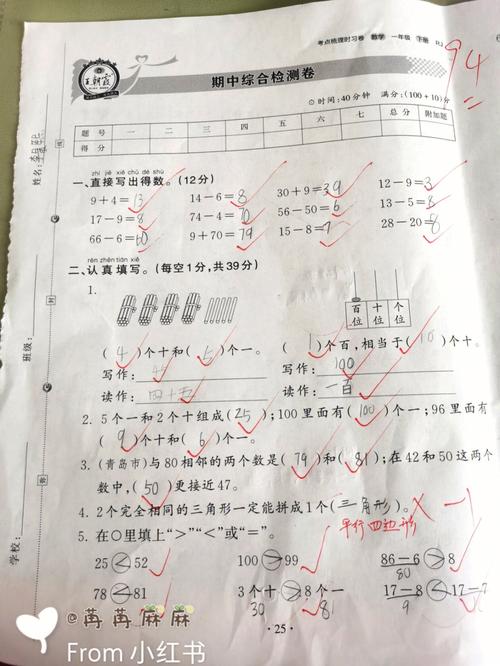 考点梳理时习卷 数学 一年级 下册 RJ
94
王朝霞
期中综合检测卷
时间:40分钟 满分:(100+10)分
题号 一 二 三 四 五 六 七 总分 附加题
得分
姓名:
zhí jiē xiě chū dé shù
一、直接写出得数。(12分)
9+4=13 14-6=8 30+9=39 12-9=3
17-9=8 74-4=70 56-50=6 13-5=8
66-6=60 9+70=79 15-8=7 28-20=8
rèn zhēn tián xiě
二、认真填写。(每空1分,共39分)
1.
百位 十位 个位
(4)个十和(5)个一。 (1)个百,相当于(10)个十。
写作:45 写作:100
读作:四十五 读作:一百
2. 5个一和2个十组成(25);100里面有(100)个一;96里面有
(9)个十和(6)个一。
3. (青岛市)与80相邻的两个数是(79)和(81);在42和50这两个
数中,(50)更接近47。
4. 2个完全相同的三角形一定能拼成1个(三角形)。 -1
平行四边形
5. 在○里填上“>”“<”或“=”。
25<52 100>99 86-6>8
80
78<81 3个十>8个一 17-8<17-7
30 9
班级:
学校:
·25·
@苒苒麻麻
From 小红书